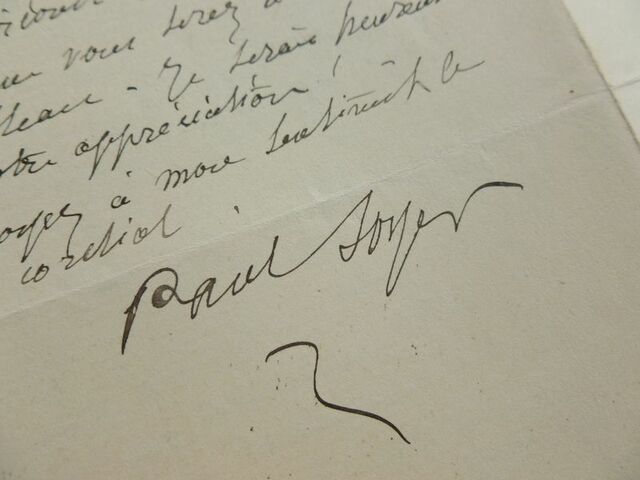 vous serez
- Je serais heureux
appréciation !
croyez à mon sentiment le
cordial.
Paul Soyer